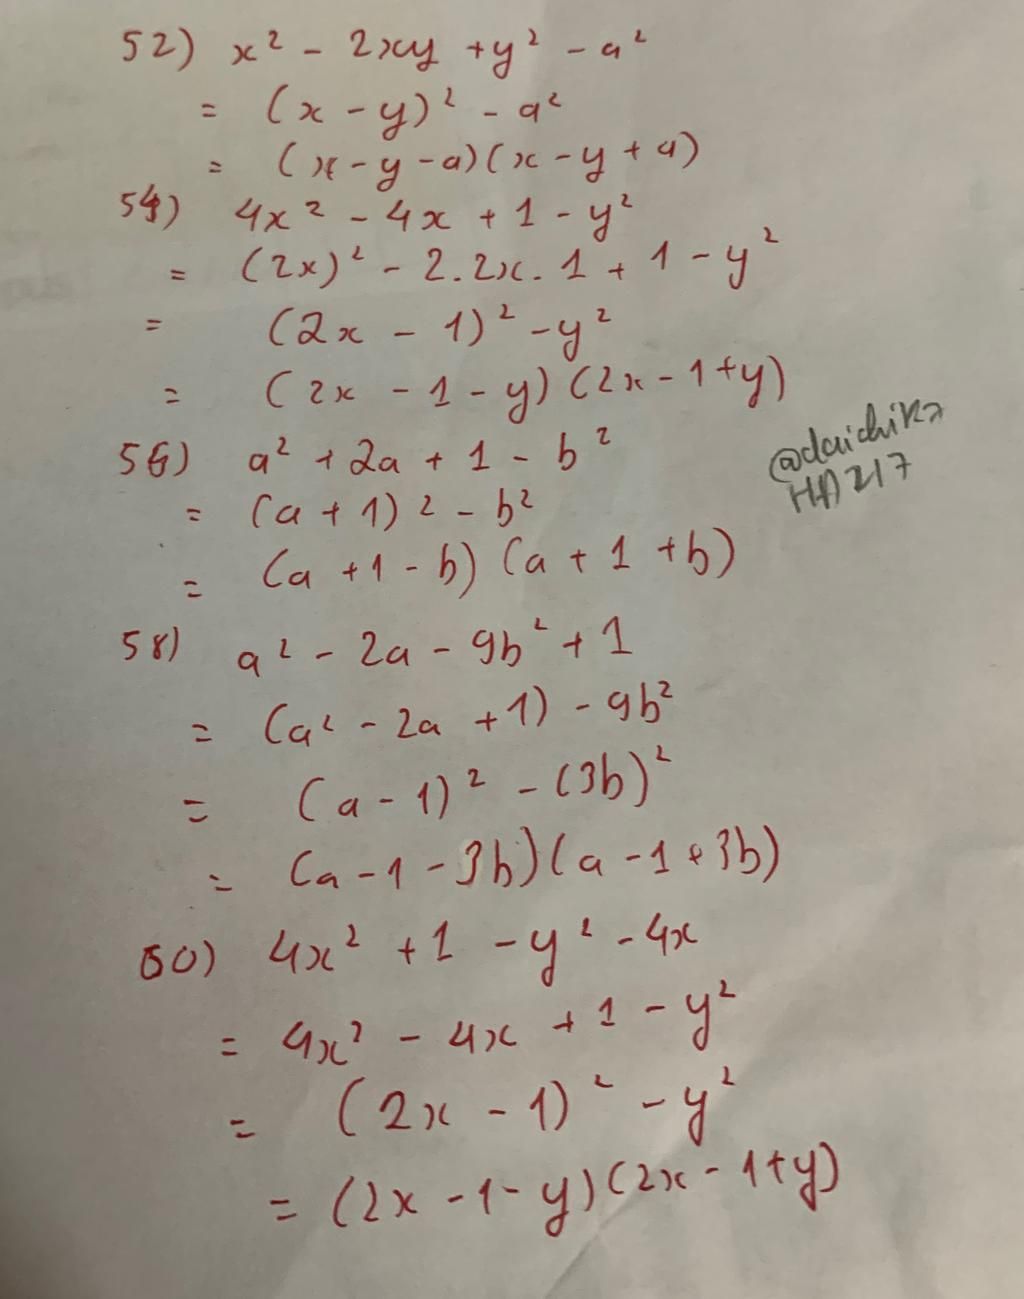 52) x² - 2xy + y² - a²
= (x - y)² - a²
= (x - y - a)(x - y + a)
54) 4x² - 4x + 1 - y²
= (2x)² - 2.2x.1 + 1 - y²
= (2x - 1)² - y²
= (2x - 1 - y)(2x - 1 + y)
56) a² + 2a + 1 - b²
= (a + 1)² - b²
= (a + 1 - b)(a + 1 + b)
@daichika
HA217
58) a² - 2a - 9b² + 1
= (a² - 2a + 1) - 9b²
= (a - 1)² - (3b)²
= (a - 1 - 3b)(a - 1 + 3b)
60) 4x² + 1 - y² - 4x
= 4x² - 4x + 1 - y²
= (2x - 1)² - y²
= (2x - 1 - y)(2x - 1 + y)